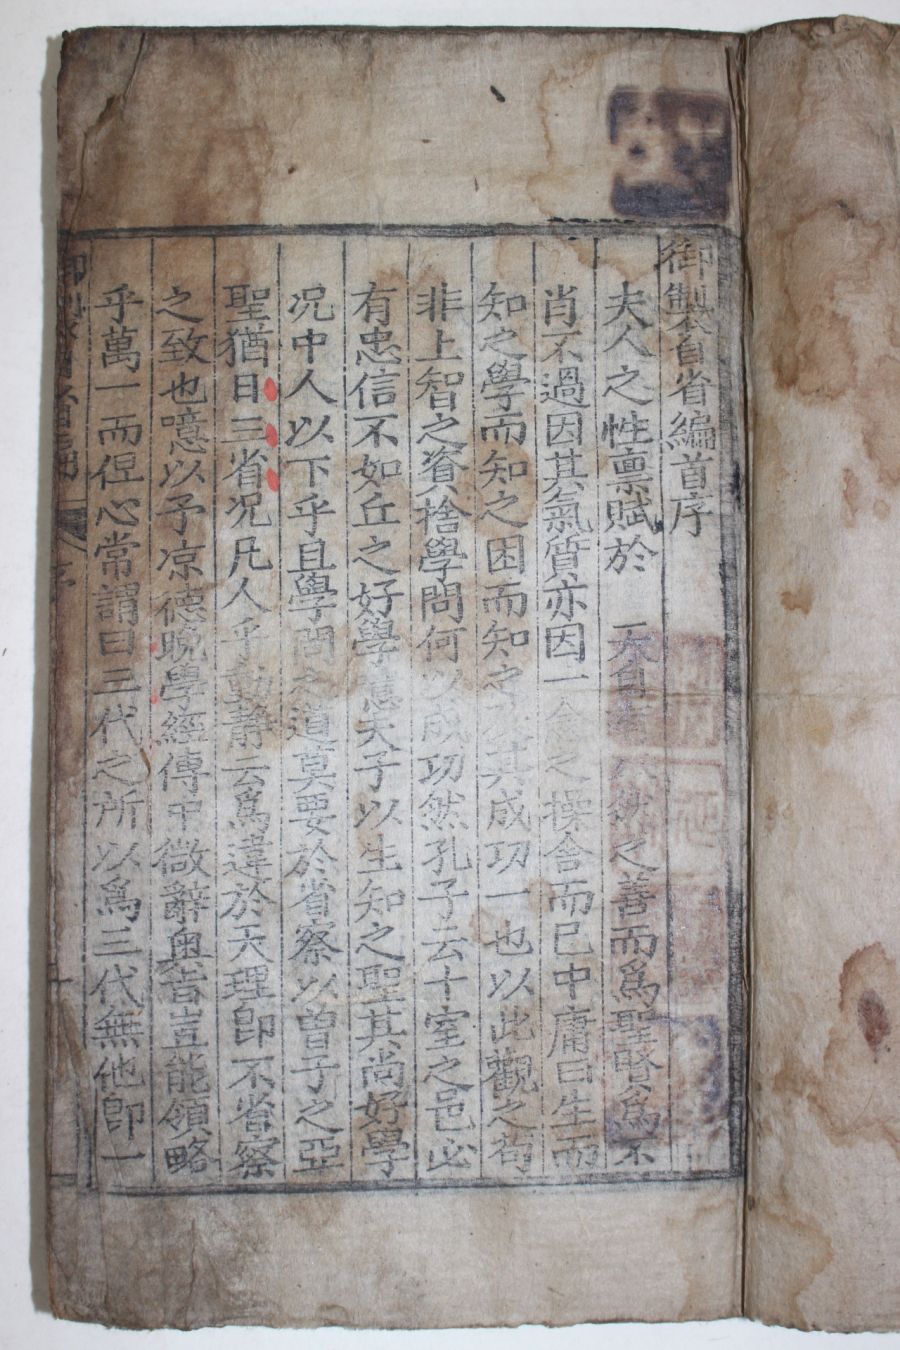 御製自省編首序
夫人之性禀賦於 天自有本然之善而爲聖賢爲不
肖不過因其氣質亦因一念之操舍而已中庸曰生而
知之學而知之困而知之及其成功一也以此觀之苟
非上智之資捨學問何以成功然孔子云十室之邑必
有忠信不如丘之好學噫夫子以生知之聖其尚好學
况中人以下乎且學問之道莫要於省察以曽子之亞
聖猶日三省况凡人乎動靜云爲違於天理卽不省察
之致也噫以予凉德晚學經傳中微辭奥旨豈能領略
乎萬一而但心常謂曰三代之所以爲三代無他卽一